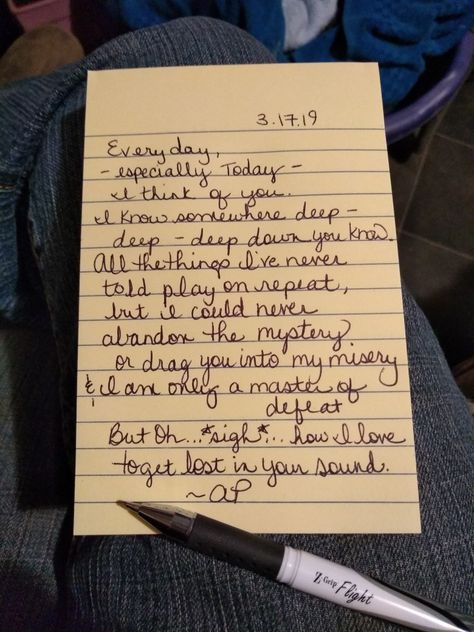 3.17.19
Everyday,
- especially Today -
I think of you.
I know somewhere deep -
deep - deep down you know.
All the things I've never
told play on repeat,
but I could never
abandon the mystery?
or drag you into my misery
& I am only a master of
defeat
But Oh...*sigh*... how I love
to get lost in your sound.
~AP
Z Grip Flight